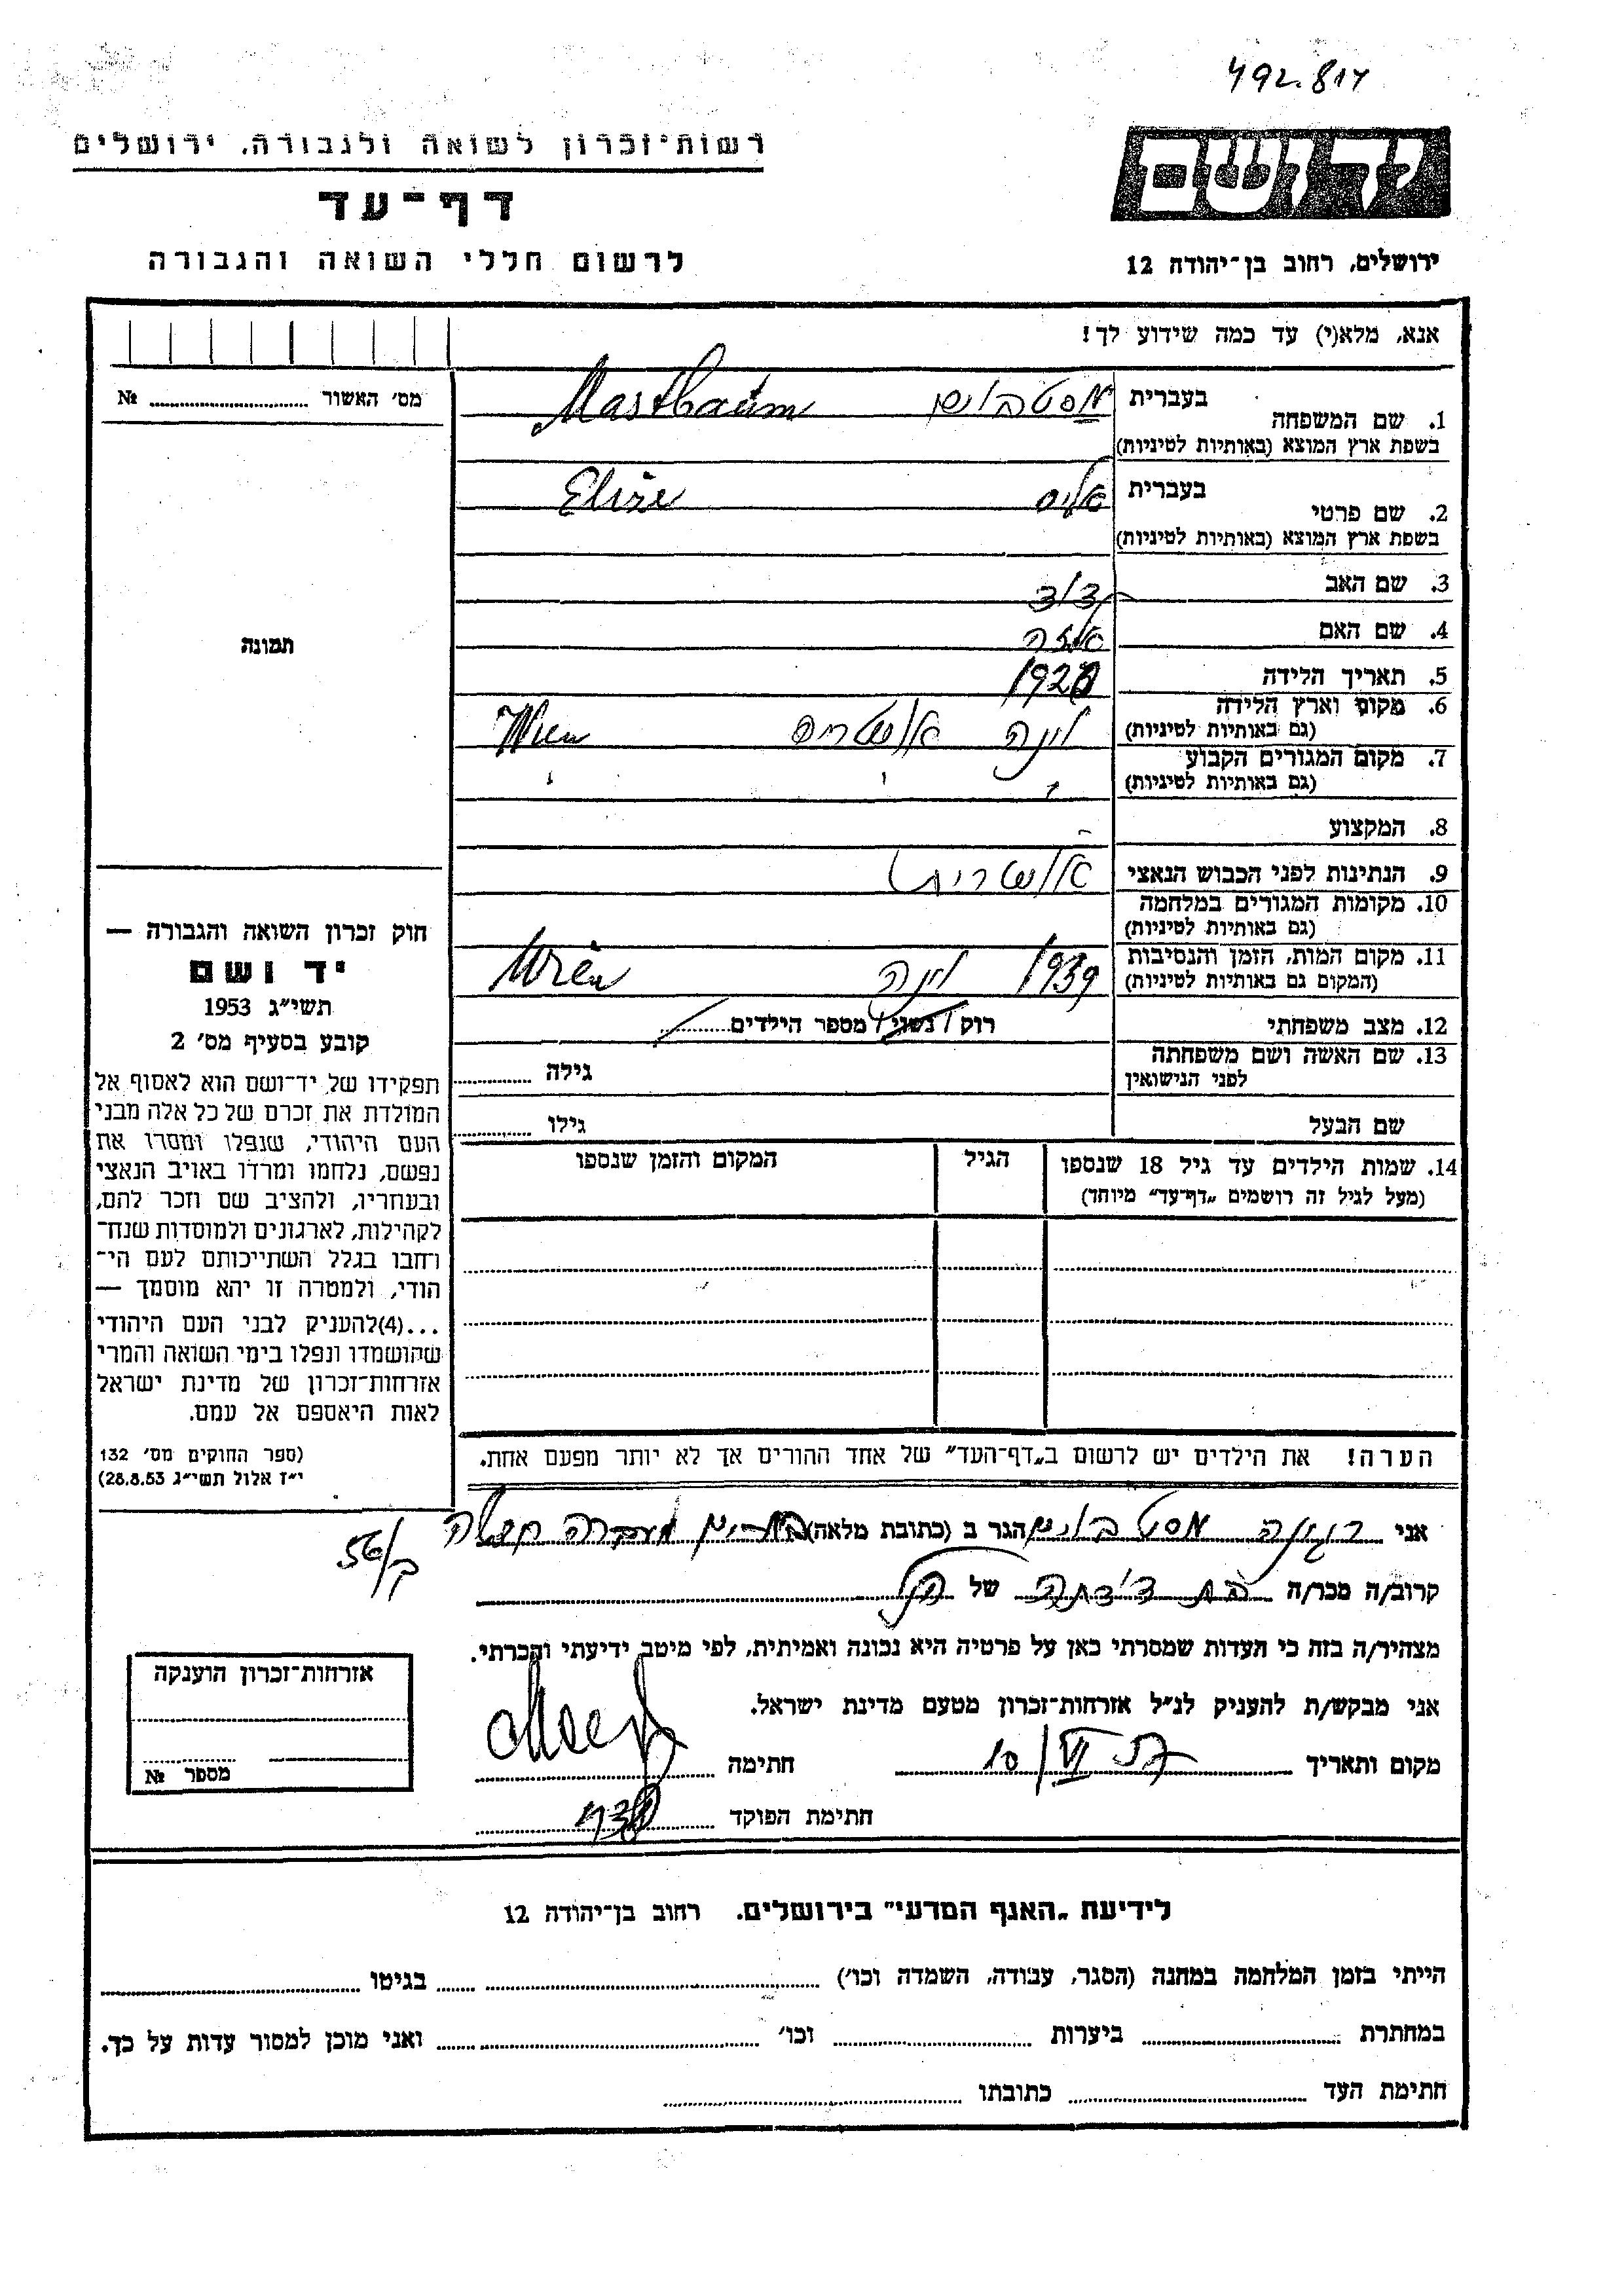 492.817
רשות־זכרון לשואה ולגבורה, ירושלים
דף־עד
לרשום חללי השואה והגבורה
יד ושם
ירושלים, רחוב בן־יהודה 12
אנא, מלא(י) עד כמה שידוע לך!
מס׳ האשור № ....................
1. שם המשפחה בעברית מסטבוים Mastbaum
בשפת ארץ המוצא (באותיות לטיניות)
2. שם פרטי בעברית אליס Elise
בשפת ארץ המוצא (באותיות לטיניות)
3. שם האב
4. שם האם אלזה
5. תאריך הלידה
6. מקום וארץ הלידה וינה אוסטריה Wien
(גם באותיות לטיניות)
7. מקום המגורים הקבוע
(גם באותיות לטיניות)
8. המקצוע -
9. הנתינות לפני הכבוש הנאצי אוסטרית
10. מקומות המגורים במלחמה
(גם באותיות לטיניות)
11. מקום המות, הזמן והנסיבות 1939 וינה Wien
(המקום גם באותיות לטיניות)
12. מצב משפחתי רוק / נשוי / מספר הילדים
13. שם האשה ושם משפחתה גילה
לפני הנישואין
שם הבעל גילו
14. שמות הילדים עד גיל 18 שנספו הגיל המקום והזמן שנספו
(מעל לגיל זה רושמים „דף־עד״ מיוחד)
הערה! את הילדים יש לרשום ב„דף־העד״ של אחד ההורים אך לא יותר מפעם אחת.
תמונה
חוק זכרון השואה והגבורה —
יד ושם
תשי״ג 1953
קובע בסעיף מס׳ 2
תפקידו של יד־ושם הוא לאסוף אל
המולדת את זכרם של כל אלה מבני
העם היהודי, שנפלו ומסרו את
נפשם, נלחמו ומרדו באויב הנאצי
ובעוזריו, ולהציב שם וזכר להם,
לקהילות, לארגונים ולמוסדות שנח־
רחבו בגלל השתייכותם לעם הי־
הודי, ולמטרה זו יהא מוסמך —
...(4)להעניק לבני העם היהודי
שהושמדו ונפלו בימי השואה והמרי
אזרחות־זכרון של מדינת ישראל
לאות היאספם אל עמם.
(ספר החוקים מס׳ 132
י״ז אלול תשי״ג 28.8.53)
אני מסטבוים הגר ב (כתובת מלאה) מעברה חדשה
ב/56
קרוב/ה מכר/ה בת של
מצהיר/ה בזה כי העדות שמסרתי כאן על פרטיה היא נכונה ואמיתית, לפי מיטב ידיעתי והכרתי.
אני מבקש/ת להעניק לנ״ל אזרחות־זכרון מטעם מדינת ישראל.
מקום ותאריך 10/VI חתימה
חתימת הפוקד
אזרחות־זכרון הוענקה
מספר №
לידיעת „האגף המדעי״ בירושלים. רחוב בן־יהודה 12
הייתי בזמן המלחמה במחנה (הסגר, עבודה, השמדה וכו׳) בגיטו
במחתרת ביערות וכו׳ ואני מוכן למסור עדות על כך.
חתימת העד כתובתו